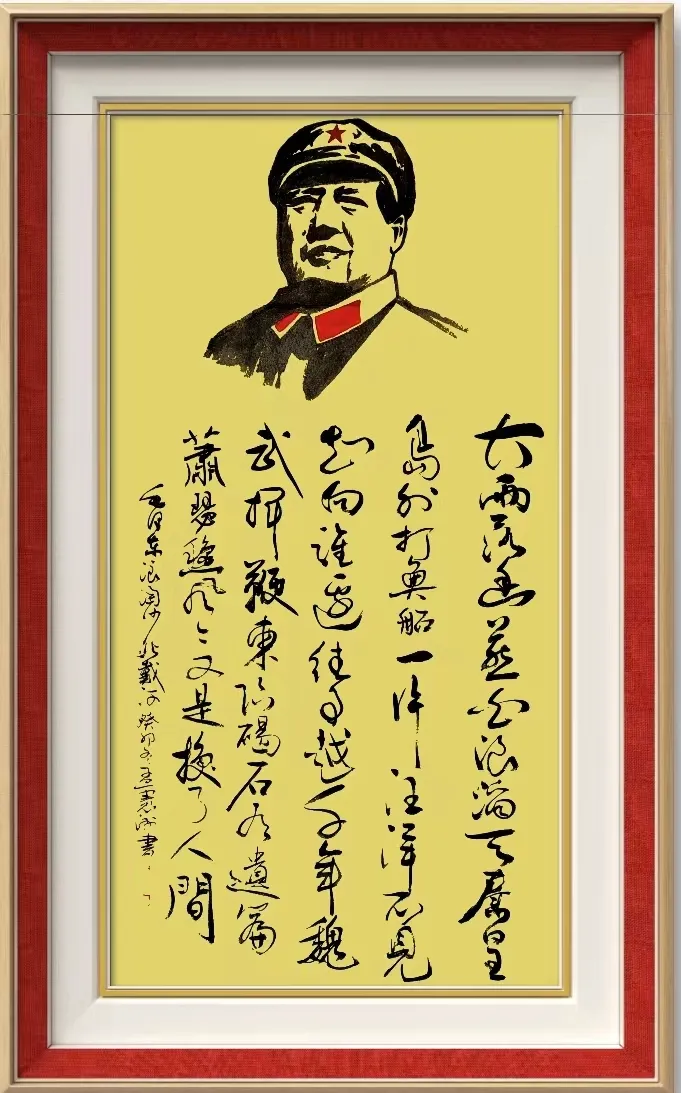 大雨落幽燕白浪滔天秦皇
島外打魚船一片汪洋不見
知向誰邊往事越千年魏
武揮鞭東臨碣石有遺篇
蕭瑟秋風今又是換了人間
毛泽东浪淘沙北戴河癸卯冬孟憲書